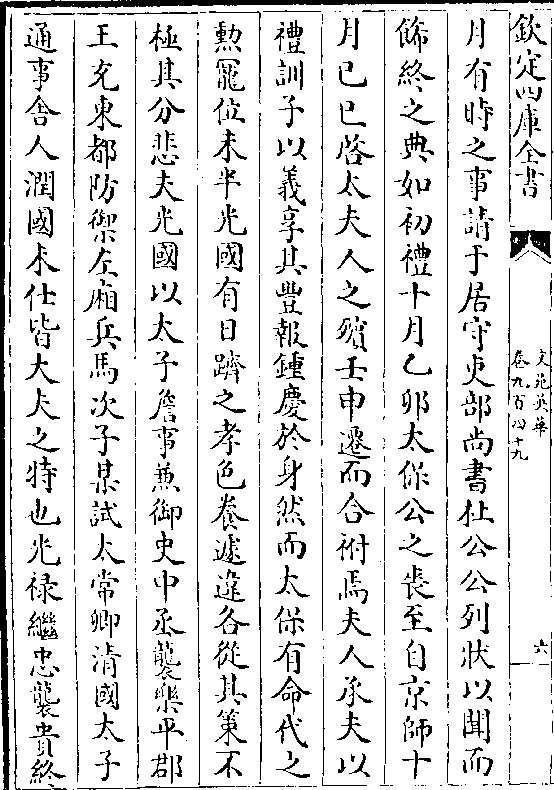 欽定四庫全書
文苑英華
卷九百四十九
六
月有時之事請于居守吏部尚書杜公公列狀以聞而
飾終之典如初禮十月乙卯太保公之喪至自京師十
月己巳啓太夫人之殯壬申遷而合祔焉夫人承夫以
禮訓子以義享其豐報鍾慶於身然而太保有命代之
勲寵位未半光國有日躋之孝色養遽違各從其筞不
極其分悲夫光國以太子詹事兼御史中丞襲樂平郡
王充東都防禦左廂兵馬次子某試太常卿清國太子
通事舍人潤國未仕皆大夫之特也光禄繼忠襲貴終